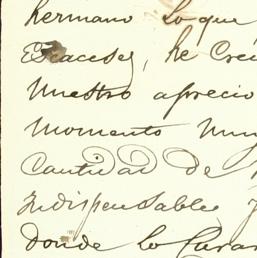 hermano lo que
Escaces, he Cre
Nuestro aprecio
Momento Nun
Cantidad de
Indispensables
donde lo Curar